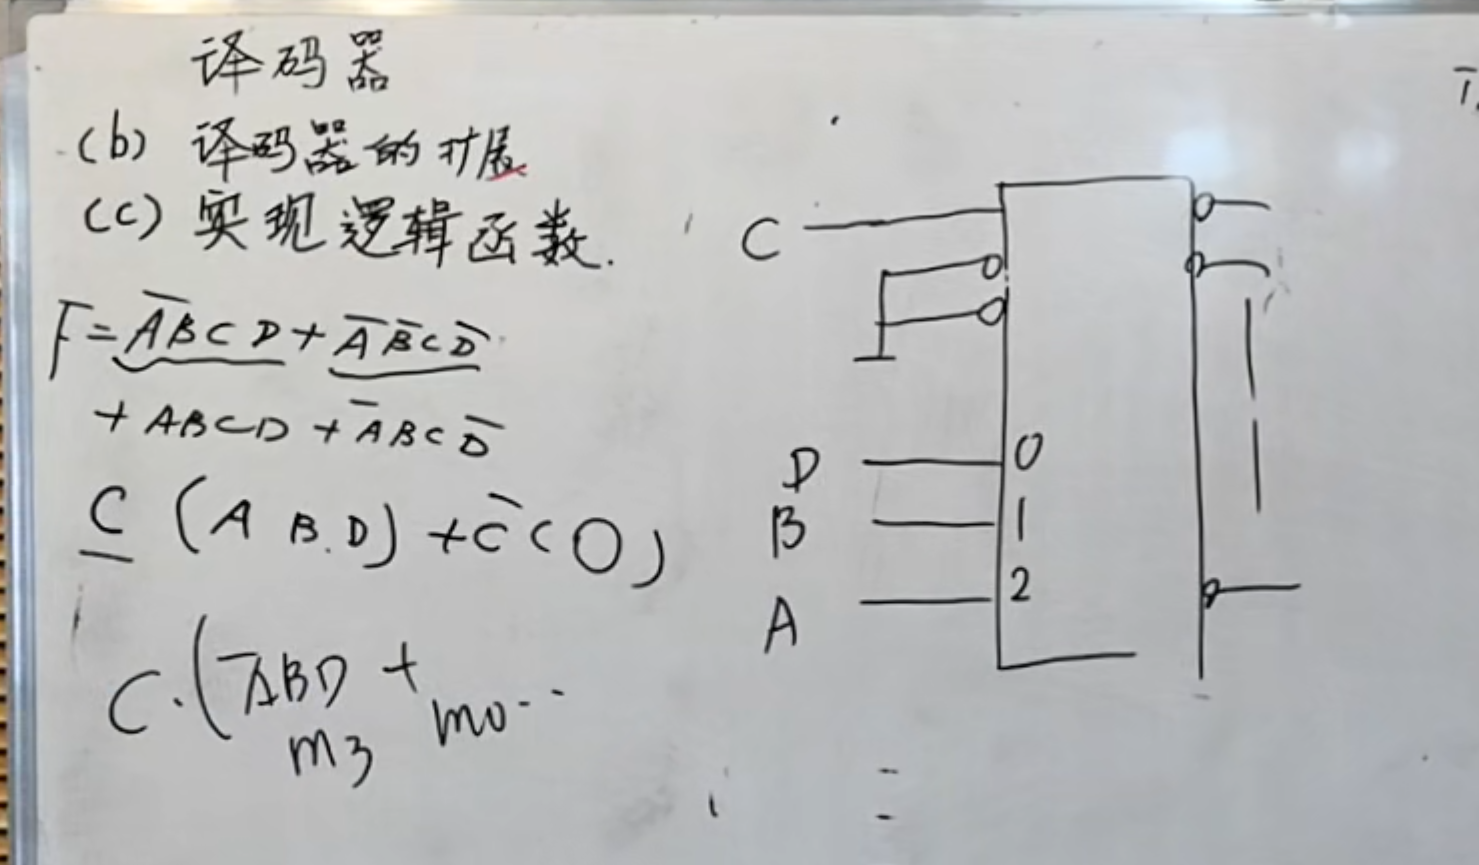 译码器
(b) 译码器的扩展
(c) 实现逻辑函数.
F = A̅BCD + A̅B̅CD̅
+ ABCD + A̅BCD̅
C (A B.D) + C̅ (0)
C·(A̅BD + m0··
m3
C
D 0
B 1
A 2